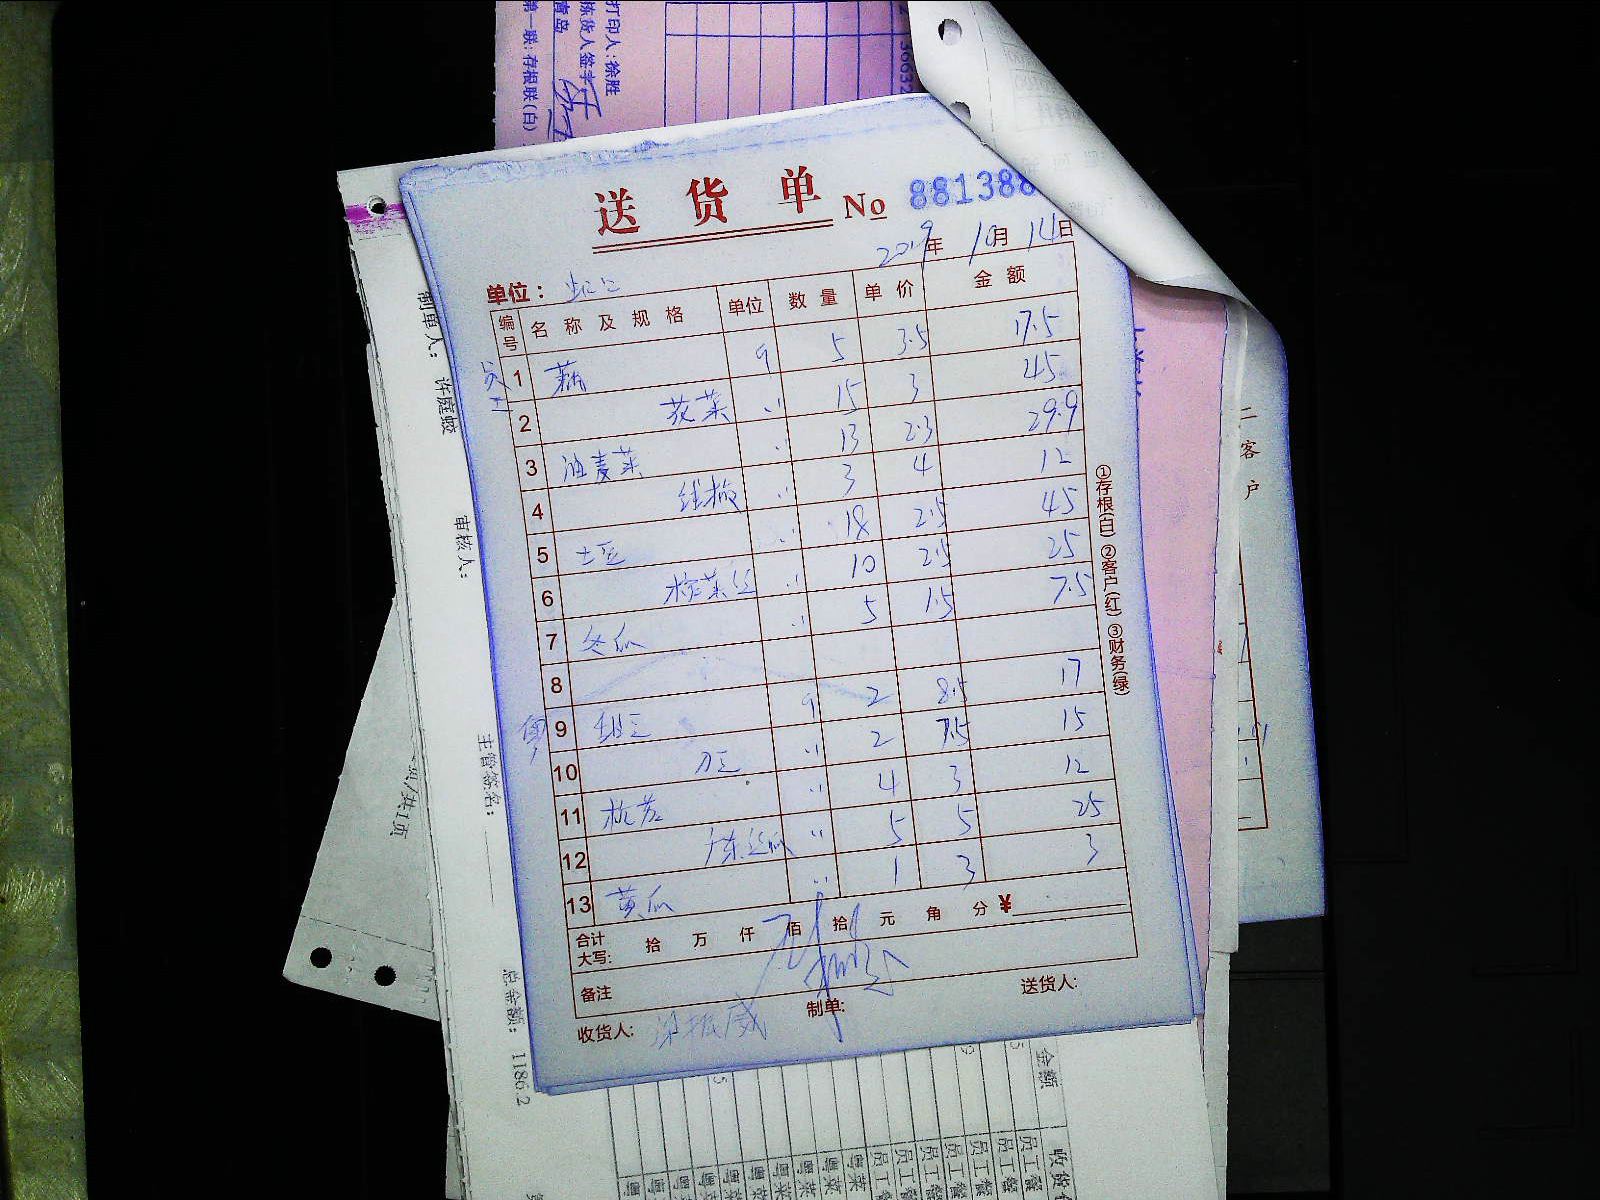 打印人:徐胜
拣货人签字
青岛
第一联:存根联(白)
送货单 No 881388
2019年 10月 14日
单位:
编号 名称及规格 单位 数量 单价 金额
1 藕 5 3.5 17.5
2 花菜 〃 15 3 45
3 油麦菜 〃 13 2.3 29.9
4 线椒 〃 3 4 12
5 土豆 〃 18 2.5 45
6 榨菜丝 〃 10 2.5 25
7 冬瓜 〃 5 1.5 7.5
8
9 2 8.5 17
10 刀豆 〃 2 7.5 15
11 〃 4 3 12
12 广东丝瓜 〃 5 5 25
13 黄瓜 〃 1 3 3
合计大写: 拾 万 仟 佰 拾 元 角 分 ¥
备注
收货人: 制单: 送货人:
①存根(白) ②客户(红) ③财务(绿)
制单人: 许庭蛟
审核人:
主管签名:
总金额: 1186.2
页/共1页
二客户
金额
员工餐 员工餐 员工餐 员工餐 员工餐 员工餐
粤菜 粤菜 粤菜 粤菜